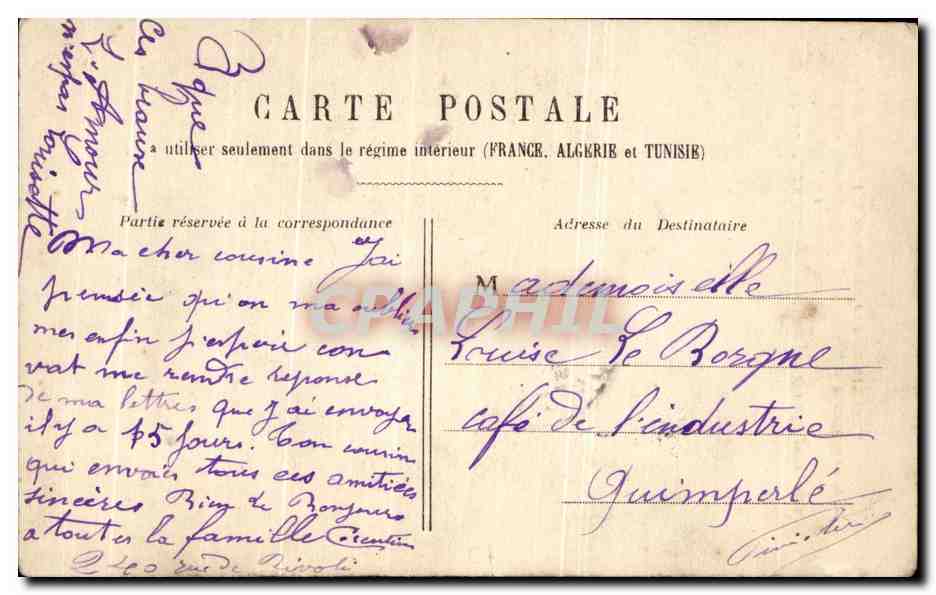 Ces
L'Amour
n'est pas Louisette
CARTE POSTALE
a utiliser seulement dans le régime intérieur (FRANCE, ALGERIE et TUNISIE)
Partie réservée à la correspondance
Ma cher cousine J'ai
pensée qu'on ma oublier
mes enfin j'espère con
vat me rendre reponse
de ma lettres que j'ai envoyer
il y a 15 jours. Ton cousin
qui envois tous ces amitiées
sincères Bien de Bonjours
a toutes la famille Corentin
240 rue de Rivoli
Adresse du Destinataire
Mademoiselle
Louise Le Borgne
café de l'industrie
Quimperlé
Finistère
CPAPHIL